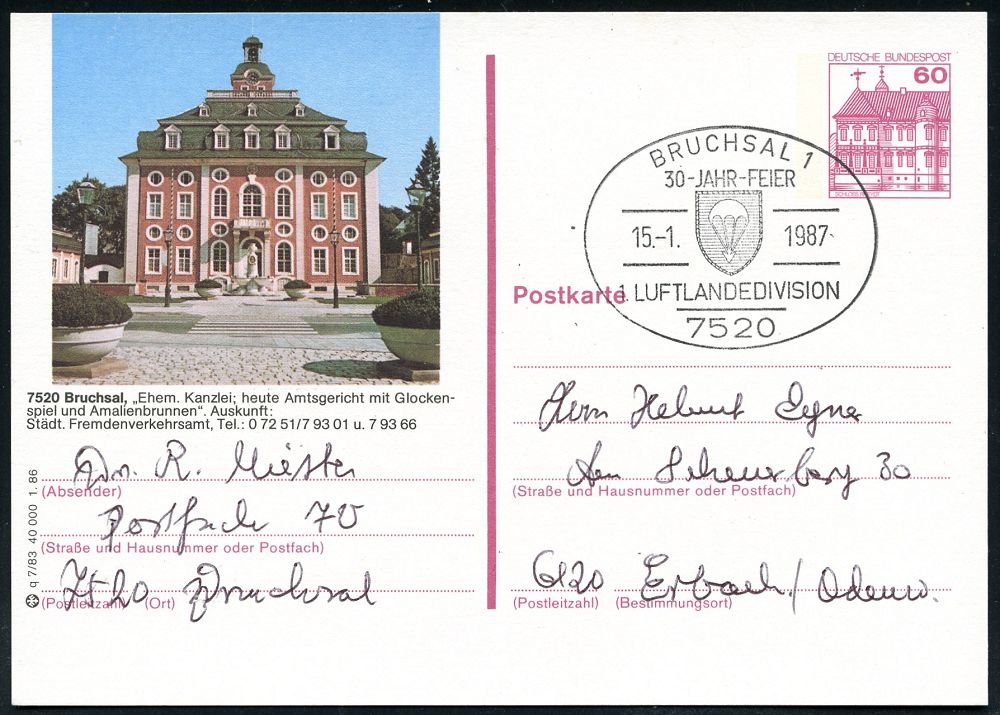 7520 Bruchsal, „Ehem. Kanzlei; heute Amtsgericht mit Glocken-
spiel und Amalienbrunnen“. Auskunft:
Städt. Fremdenverkehrsamt, Tel.: 0 72 51/7 93 01 u. 7 93 66
R.
(Absender)
Postfach
(Straße und Hausnummer oder Postfach)
Bruchsal
(Postleitzahl) (Ort)
q 7/83 40 000 1.86
DEUTSCHE BUNDESPOST
60
BRUCHSAL 1
30-JAHR-FEIER
15.-1. 1987
1. LUFTLANDEDIVISION
7520
Postkarte
Herrn Helmut
Am 30
(Straße und Hausnummer oder Postfach)
6120 Erbach/Odenw.
(Postleitzahl) (Bestimmungsort)